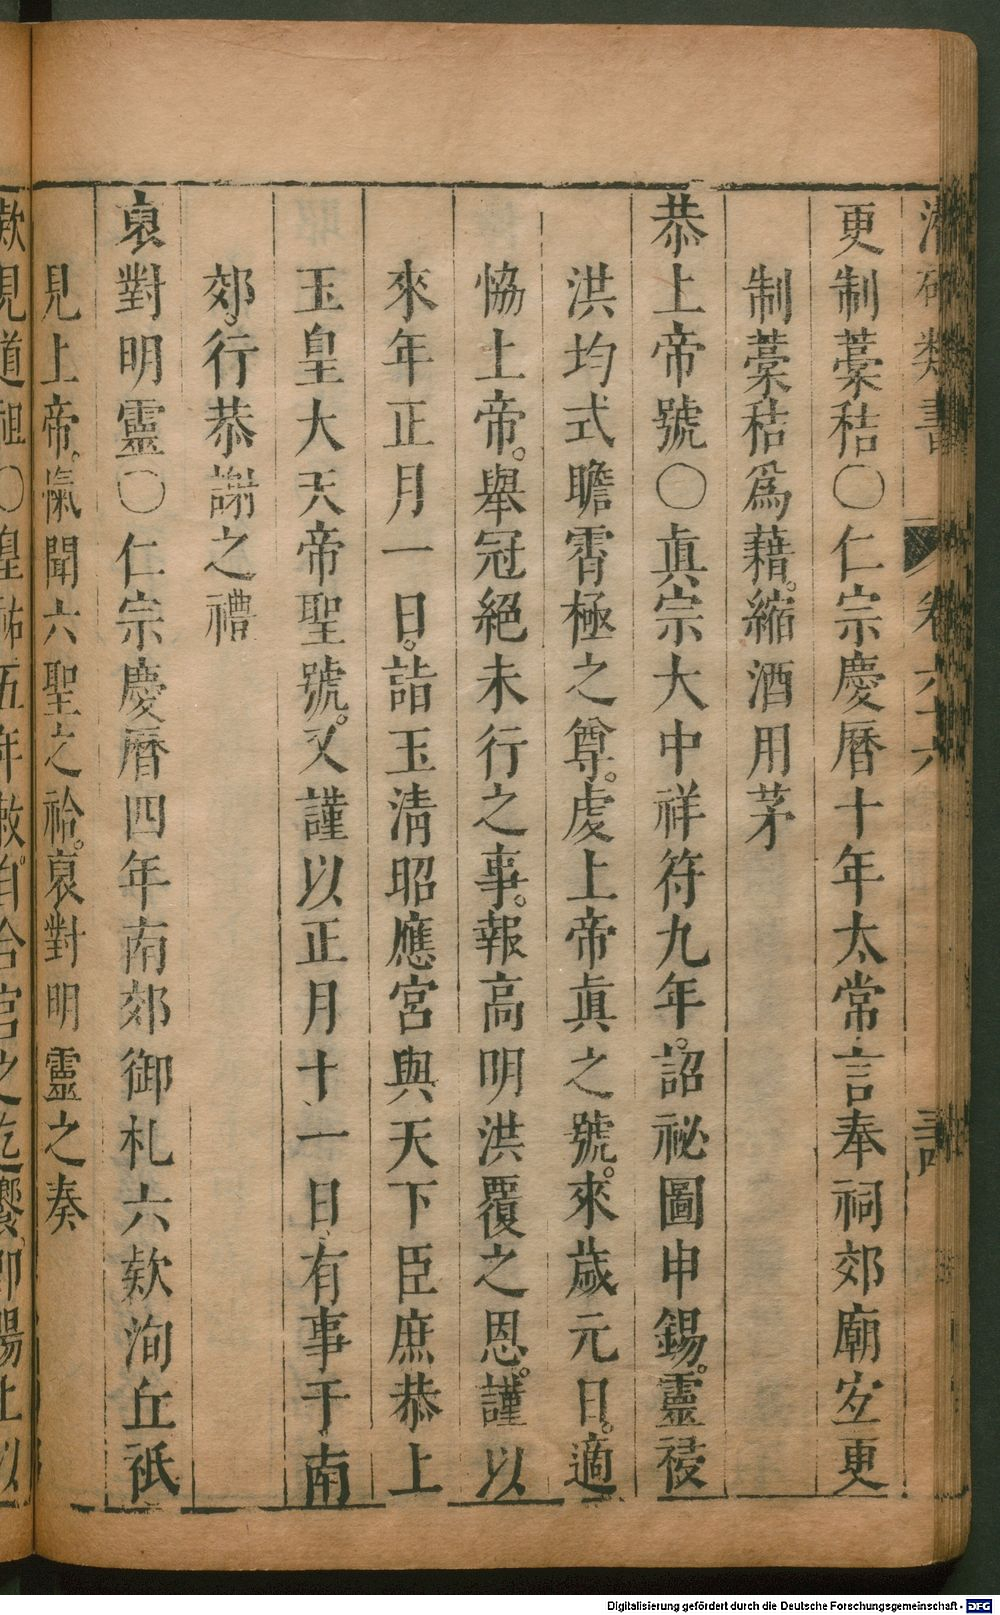 類書 卷六
更制藁秸〇仁宗慶曆十年太常言奉祠郊廟宜更
制藁秸爲藉。縮酒用茅
恭上帝號〇眞宗大中祥符九年。詔祕圖申錫。靈祲
洪均式瞻霄極之尊。虔上帝眞之號。來歲元日。適
恊上帝。舉冠絕未行之事。報高明洪覆之恩。謹以
來年正月一日。詣玉淸昭應宮與天下臣庶恭上
玉皇大天帝聖號。又謹以正月十一日有事于南
郊。行恭謝之禮
裒對明靈〇仁宗慶曆四年南郊御札六欵洵丘祇
見上帝。愾聞六聖之祫。裒對明靈之奏
欵見道祖〇皇祐五年敕。自合宮之迄饗。卽陽上以
Digitalisierung gefördert durch die Deutsche Forschungsgemeinschaft - DFG